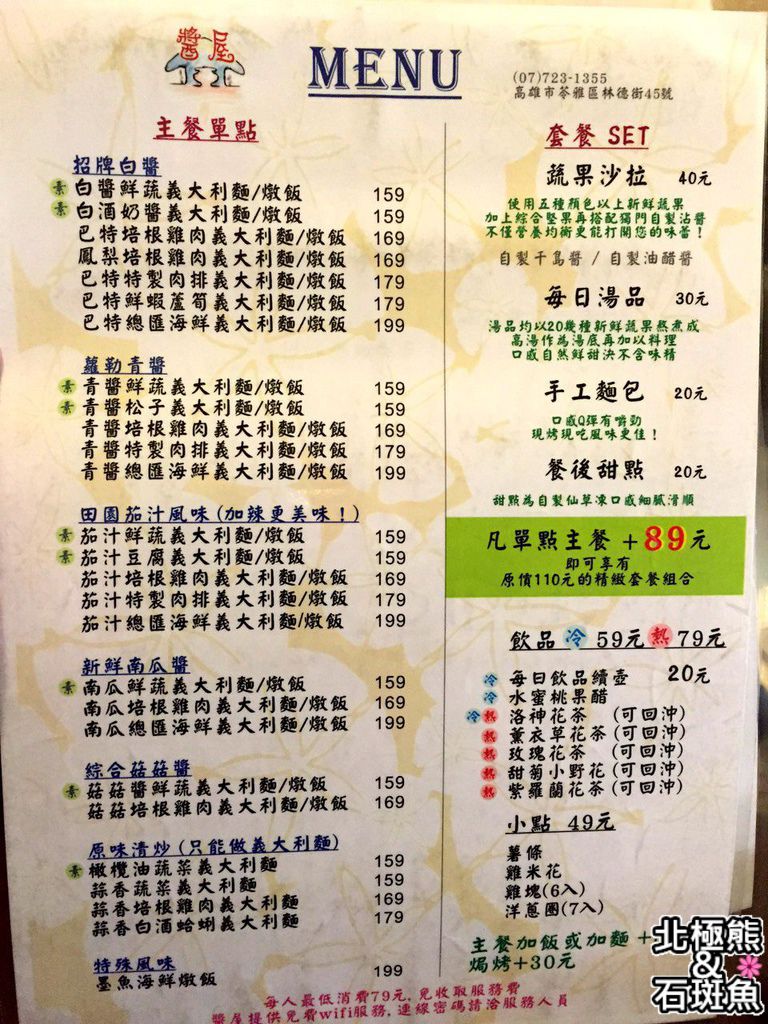 醬屋
MENU
(07)723-1355
高雄市苓雅區林德街45號
主餐單點
招牌白醬
素 白醬鮮蔬義大利麵/燉飯 159
素 白酒奶醬義大利麵/燉飯 159
巴特培根雞肉義大利麵/燉飯 169
鳳梨培根雞肉義大利麵/燉飯 169
巴特特製肉排義大利麵/燉飯 179
巴特鮮蝦蘆筍義大利麵/燉飯 179
巴特總匯海鮮義大利麵/燉飯 199
蘿勒青醬
素 青醬鮮蔬義大利麵/燉飯 159
素 青醬松子義大利麵/燉飯 159
青醬培根雞肉義大利麵/燉飯 169
青醬特製肉排義大利麵/燉飯 179
青醬總匯海鮮義大利麵/燉飯 199
田園茄汁風味(加辣更美味!)
素 茄汁鮮蔬義大利麵/燉飯 159
素 茄汁豆腐義大利麵/燉飯 159
茄汁培根雞肉義大利麵/燉飯 169
茄汁特製肉排義大利麵/燉飯 179
茄汁總匯海鮮義大利麵/燉飯 199
新鮮南瓜醬
素 南瓜鮮蔬義大利麵/燉飯 159
南瓜培根雞肉義大利麵/燉飯 169
南瓜總匯海鮮義大利麵/燉飯 199
綜合菇菇醬
素 菇菇醬鮮蔬義大利麵/燉飯 159
菇菇培根雞肉義大利麵/燉飯 169
原味清炒(只能做義大利麵)
素 橄欖油蔬菜義大利麵 159
蒜香蔬菜義大利麵 159
蒜香培根雞肉義大利麵 169
蒜香白酒蛤蜊義大利麵 179
特殊風味
墨魚海鮮燉飯 199
套餐 SET
蔬果沙拉 40元
使用五種顏色以上新鮮蔬果
加上綜合堅果再搭配獨門自製沾醬
不僅營養均衡更能打開您的味蕾!
自製千島醬 / 自製油醋醬
每日湯品 30元
湯品均以20幾種新鮮蔬果熬煮成
高湯作為湯底再加以料理
口感自然鮮甜決不含味精
手工麵包 20元
口感Q彈有嚼勁
現烤現吃風味更佳!
餐後甜點 20元
甜點為自製仙草凍口感細膩滑順
凡單點主餐+89元
即可享有
原價110元的精緻套餐組合
飲品 冷 59元 熱 79元
冷 每日飲品續壺 20元
冷 水蜜桃果醋
冷 熱 洛神花茶 (可回沖)
熱 薰衣草花茶(可回沖)
熱 玫瑰花茶 (可回沖)
熱 甜菊小野花(可回沖)
熱 紫羅蘭花茶(可回沖)
小點 49元
薯條
雞米花
雞塊(6入)
洋蔥圈(7入)
主餐加飯或加麵+
焗烤+30元
每人最低消費79元,免收取服務費
醬屋提供免費wifi服務,連線密碼請洽服務人員
北極熊
&
石斑魚